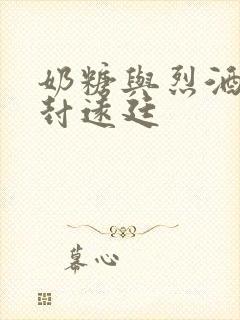 奶糖與烈酒
封遠廷
幕心